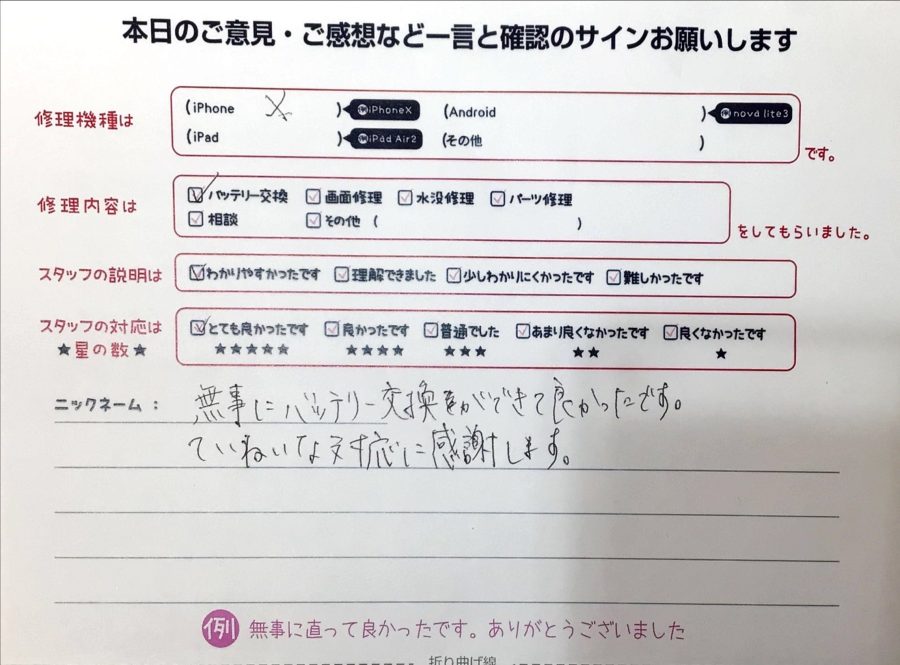 本日のご意見・ご感想など一言と確認のサインお願いします
修理機種は
(iPhone X ) 例iPhoneX (Android ) 例nova lite3
(iPad ) 例iPad Air2 (その他 )
です。
修理内容は
バッテリー交換 画面修理 水没修理 パーツ修理
相談 その他 ( )
をしてもらいました。
スタッフの説明は わかりやすかったです 理解できました 少しわかりにくかったです 難しかったです
スタッフの対応は とても良かったです 良かったです 普通でした あまり良くなかったです 良くなかったです
★星の数★ ★★★★★ ★★★★ ★★★ ★★ ★
ニックネーム: 無事にバッテリー交換ができて良かったです。
ていねいな対応に感謝します。
例 無事に直って良かったです。ありがとうございました
折り曲げ線